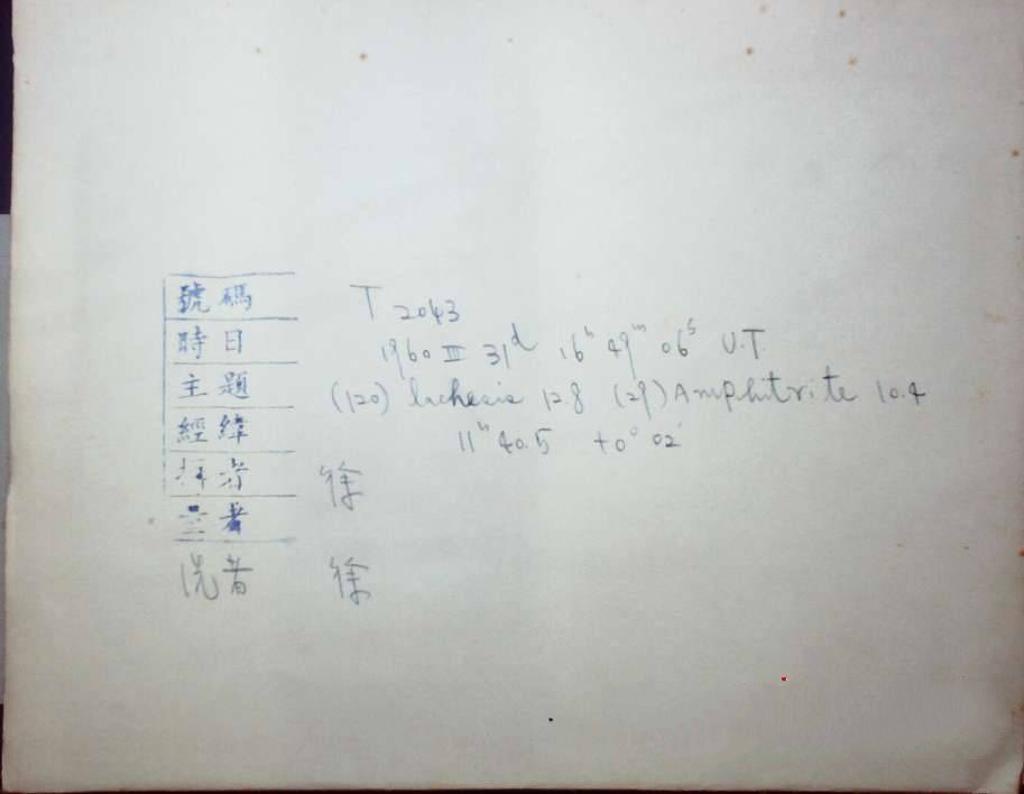 號碼 T 2043
時日 1960 III 31d 16h 49m 06s U.T.
主題 (120) Lachesis 12.8 (29) Amphitrite 10.4
經緯 11h 40.5 +0° 02'
拍者 徐
量者
洗者 徐